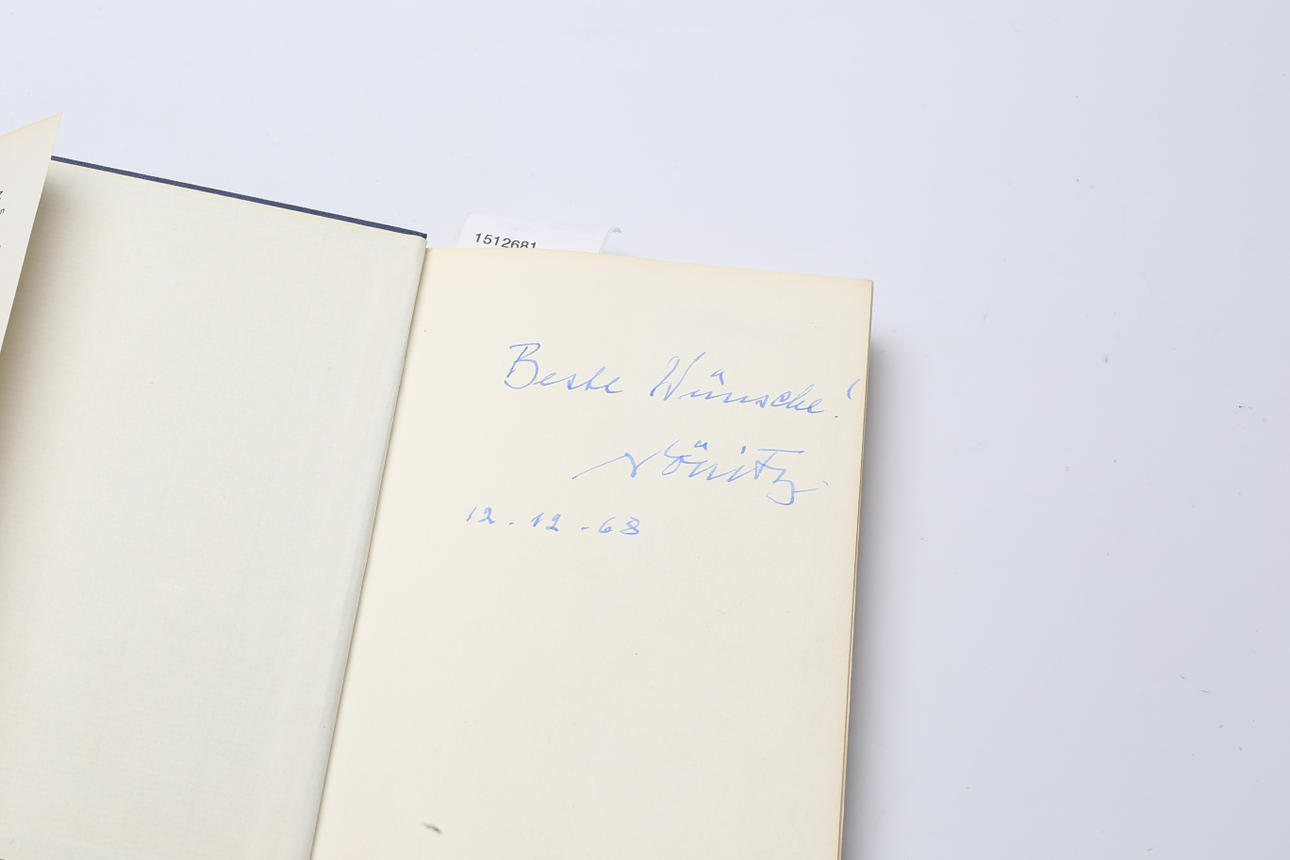 1512681
Beste Wünsche!
12.12.68